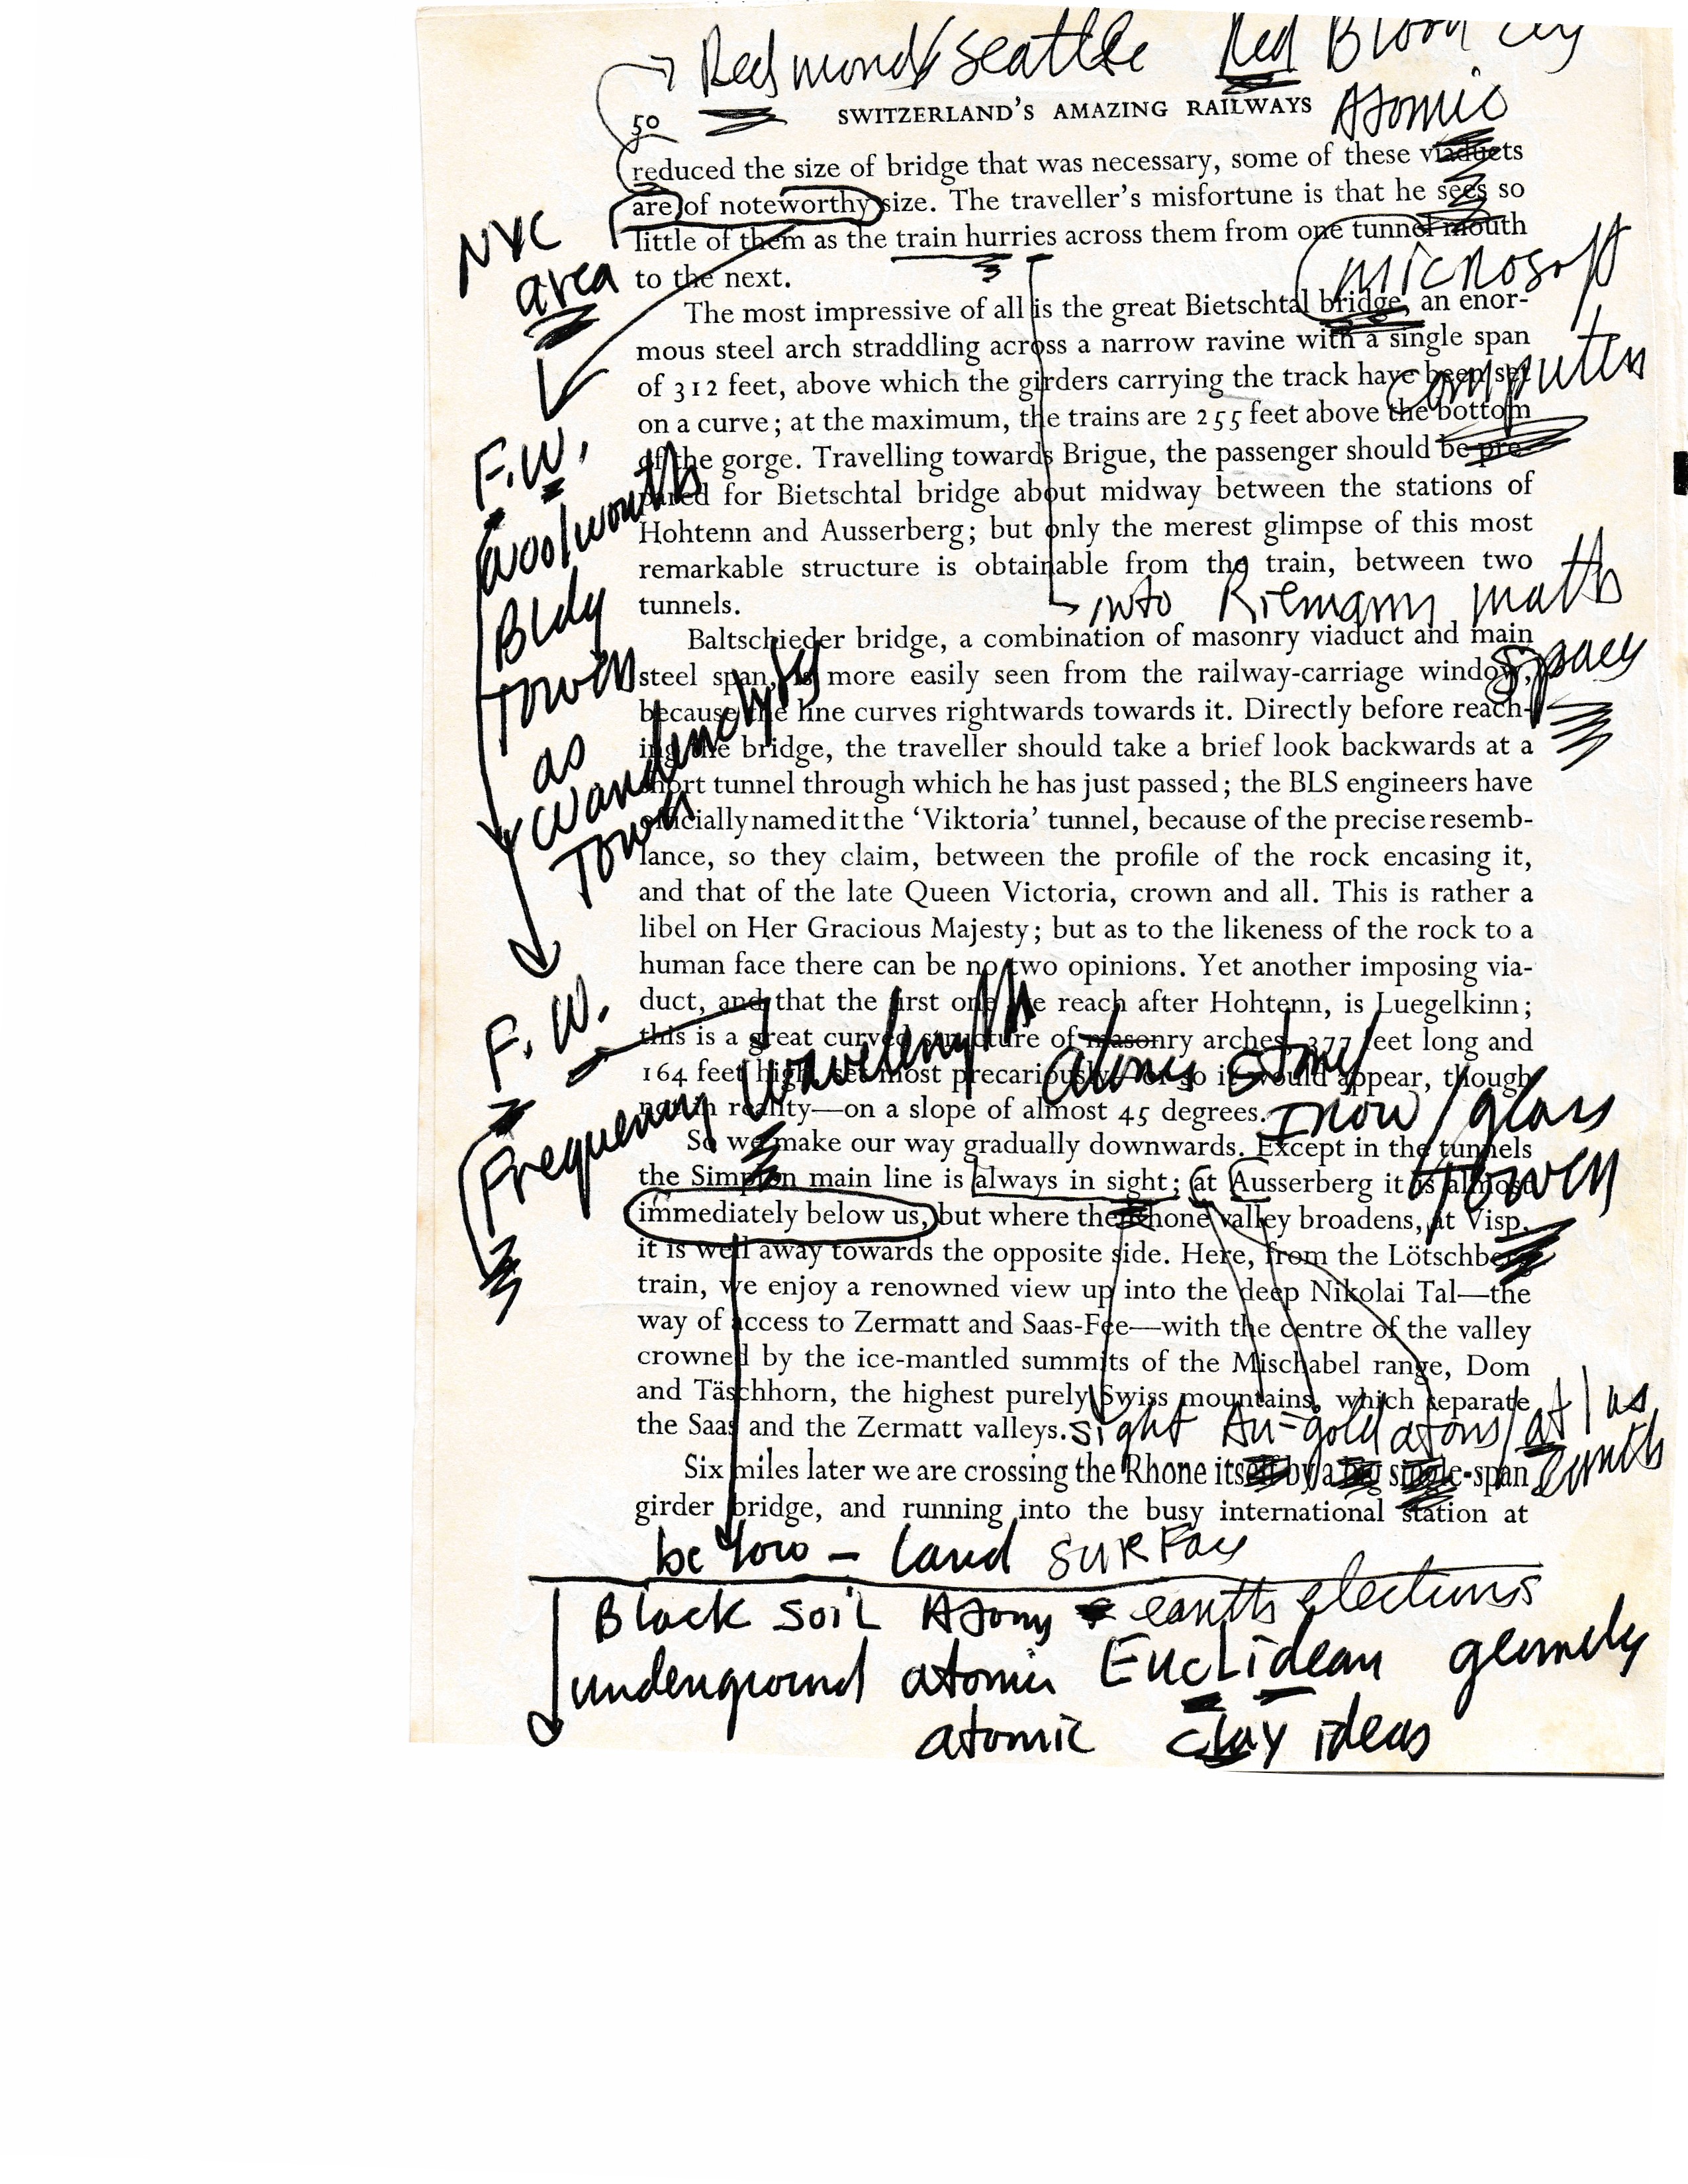 Redmond/Seattle Red Blood
50 SWITZERLAND'S AMAZING RAILWAYS Atomic
reduced the size of bridge that was necessary, some of these viaducts
are of noteworthy size. The traveller's misfortune is that he sees so
little of them as the train hurries across them from one tunnel mouth
to the next.
NYC
area
microsoft
The most impressive of all is the great Bietschtal bridge, an enor-
mous steel arch straddling across a narrow ravine with a single span
of 312 feet, above which the girders carrying the track have been set
computer
on a curve; at the maximum, the trains are 255 feet above the bottom
of the gorge. Travelling towards Brigue, the passenger should be pre-
pared for Bietschtal bridge about midway between the stations of
Hohtenn and Ausserberg; but only the merest glimpse of this most
remarkable structure is obtainable from the train, between two
tunnels.
F.W.
Woolworth
Bldg
Tower
as
Wardenclyffe
Tower
into Riemann math
spaces
Baltschieder bridge, a combination of masonry viaduct and main
steel span, is more easily seen from the railway-carriage window,
because the line curves rightwards towards it. Directly before reach-
ing the bridge, the traveller should take a brief look backwards at a
short tunnel through which he has just passed; the BLS engineers have
officially named it the 'Viktoria' tunnel, because of the precise resemb-
lance, so they claim, between the profile of the rock encasing it,
and that of the late Queen Victoria, crown and all. This is rather a
libel on Her Gracious Majesty; but as to the likeness of the rock to a
human face there can be no two opinions. Yet another imposing via-
duct, and that the first one we reach after Hohtenn, is Luegelkinn;
this is a great curved structure of masonry arches, 377 feet long and
164 feet high, set most precariously—or so it would appear, though
not in reality—on a slope of almost 45 degrees.
F.W.
Frequency Wavelength
atomic steel
/glass
tower
So we make our way gradually downwards. Except in the tunnels
the Simplon main line is always in sight; at Ausserberg it is almost
immediately below us, but where the Rhone valley broadens, at Visp,
it is well away towards the opposite side. Here, from the Lötschberg
train, we enjoy a renowned view up into the deep Nikolai Tal—the
way of access to Zermatt and Saas-Fee—with the centre of the valley
crowned by the ice-mantled summits of the Mischabel range, Dom
and Täschhorn, the highest purely Swiss mountains, which separate
the Saas and the Zermatt valleys.
sight Au=gold atoms/at/us
earth
Six miles later we are crossing the Rhone itself by a big single-span
girder bridge, and running into the busy international station at
below – land surface
Black soil Atoms earth elections
underground atomic EucLidean geometry
atomic clay ideas